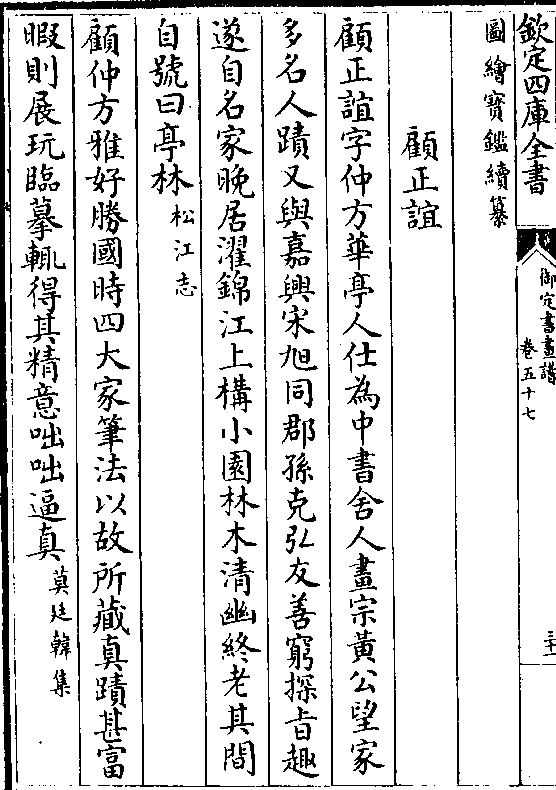 欽定四庫全書
御定書畫譜
卷五十七
三十一
圖繪寶鑑續纂
顧正誼
顧正誼字仲方華亭人仕為中書舍人畫宗黃公望家
多名人蹟又與嘉興宋旭同郡孫克弘友善窮探旨趣
遂自名家晚居濯錦江上構小園林木清幽終老其間
自號曰亭林松江志
顧仲方雅好勝國時四大家筆法以故所藏真蹟甚富
暇則展玩臨摹輒得其精意咄咄逼真莫廷韓集